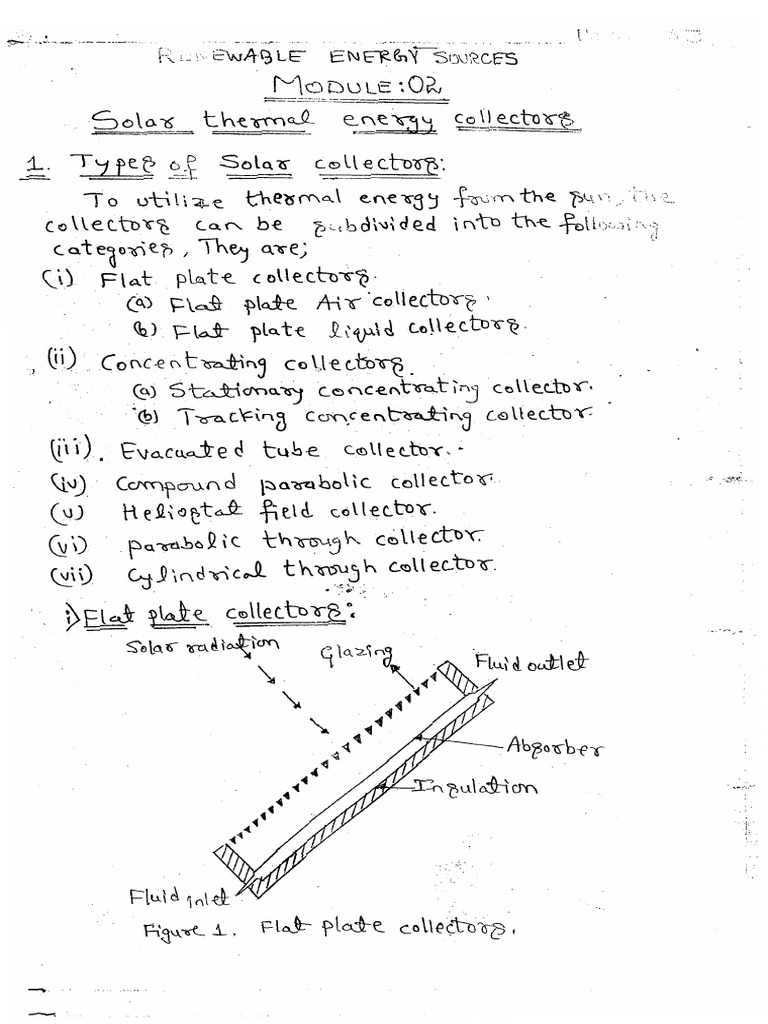 RENEWABLE ENERGY SOURCES
MODULE:02
Solar thermal energy collectors
1. Types of Solar collectors:
To utilize thermal energy from the sun, the
collectors can be subdivided into the following
categories, They are;
(i) Flat plate collectors.
(a) Flat plate Air collectors.
(b) Flat plate liquid collectors.
(ii) Concentrating collectors.
(a) Stationary concentrating collector.
(b) Tracking concentrating collector.
(iii). Evacuated tube collector.
(iv) Compound parabolic collector.
(v) Helioptat field collector.
(vi) parabolic through collector.
(vii) Cylindrical through collector.
i) Flat plate collectors:
Solar radiation
Glazing
Fluid outlet
Absorber
Insulation
Fluid inlet
Figure 1. Flat plate collectors.